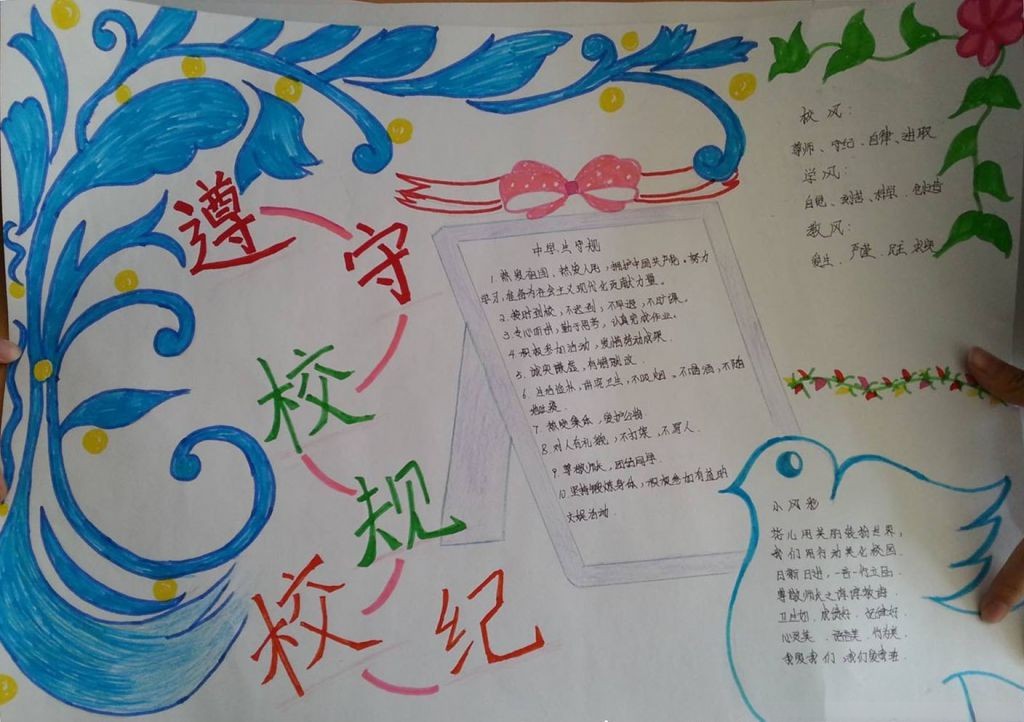 遵守
校规
校纪
中学生守规
1. 热爱祖国，热爱人民，拥护中国共产党，努力
学习，准备为社会主义现代化贡献力量。
2. 按时到校，不迟到，不早退，不旷课。
3. 专心听讲，勤于思考，认真完成作业。
4. 积极参加活动，爱惜劳动成果.
5. 诚实谦虚，有错就改.
6. 讲究卫生，不吸烟、不喝酒，不随
地吐痰.
7. 热爱集体，爱护公物
8. 对人有礼貌，不打架，不骂人.
9. 尊敬师长，团结同学.
10. 坚持锻炼身体，积极参加有益的
文娱活动.
校风：
尊师、守纪、自律、进取
学风：
自勉、刻苦、
教风：
爱生、严谨、
小风
花儿用美丽装扮世界，
我们用行动美化校园.
日新日进，一言一行
尊敬师长之谆谆教诲.
心灵美、语言美、行为美.